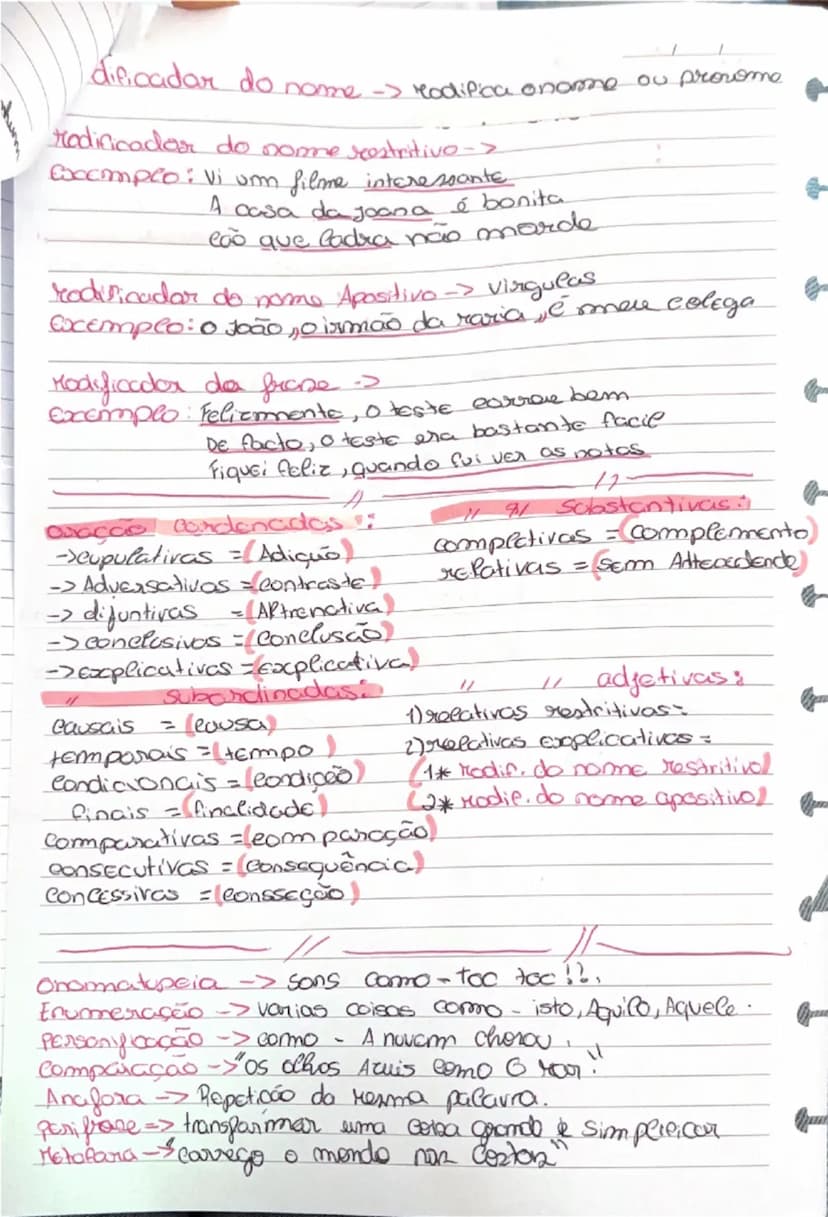 dificador do nome -> modifica o nome ou pronome
Modificador do nome restritivo ->
Exemplo: Vi um filme interessante
A casa da joana é bonita
cão que ladra não morde
Modificador do nome Apositivo -> virgulas
Exemplo: o João, o irmão da maria, é meu colega
Modificador da frase ->
Exemplo: Felizmente, o teste correu bem
De facto, o teste era bastante facil
Fiquei feliz, quando fui ver as notas
oração cordenadas:
-> cupulativas = (Adição)
-> Adversativas = (contraste)
-> difuntivas = (Altrenativa)
-> conclusivas = (Conclusão)
-> explicativas = (explicativa)
" subordinadas:
causais = (causa)
temporais = (tempo)
Condicionais = (condição)
finais = (finalidade)
comparativas = (comparação)
consecutivas = (consequência)
concessivas = (consseção)
" " Sobstantivas:
completivas = (complemento)
relativas = (sem Antecedende)
" " adjetivas:
1) relativas restritivas =
2) relativas explicativas =
(1* modif. do nome restritivo)
(2* modif. do nome apositivo)
Onomatupeia -> sons como - toc toc!!.
Enumeração -> varias coisas como - isto, Aquilo, Aquele.
personificação -> como - A nuvem chorou.
Comparação -> "os olhos Azuis como o mar."
Anáfora -> Repetição da mesma palavra.
perifrase => transfarmar uma coisa grande e simplificar
Metafara -> "carrego o mondo nas Costas"